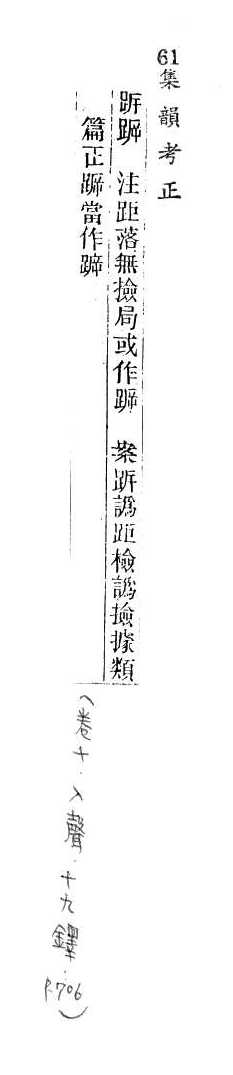 61集韻考正
跅 注距落無撿局或作 案跅譌距檢譌撿據類
篇正 當作
(卷十．入聲．十九鐸．P.706)